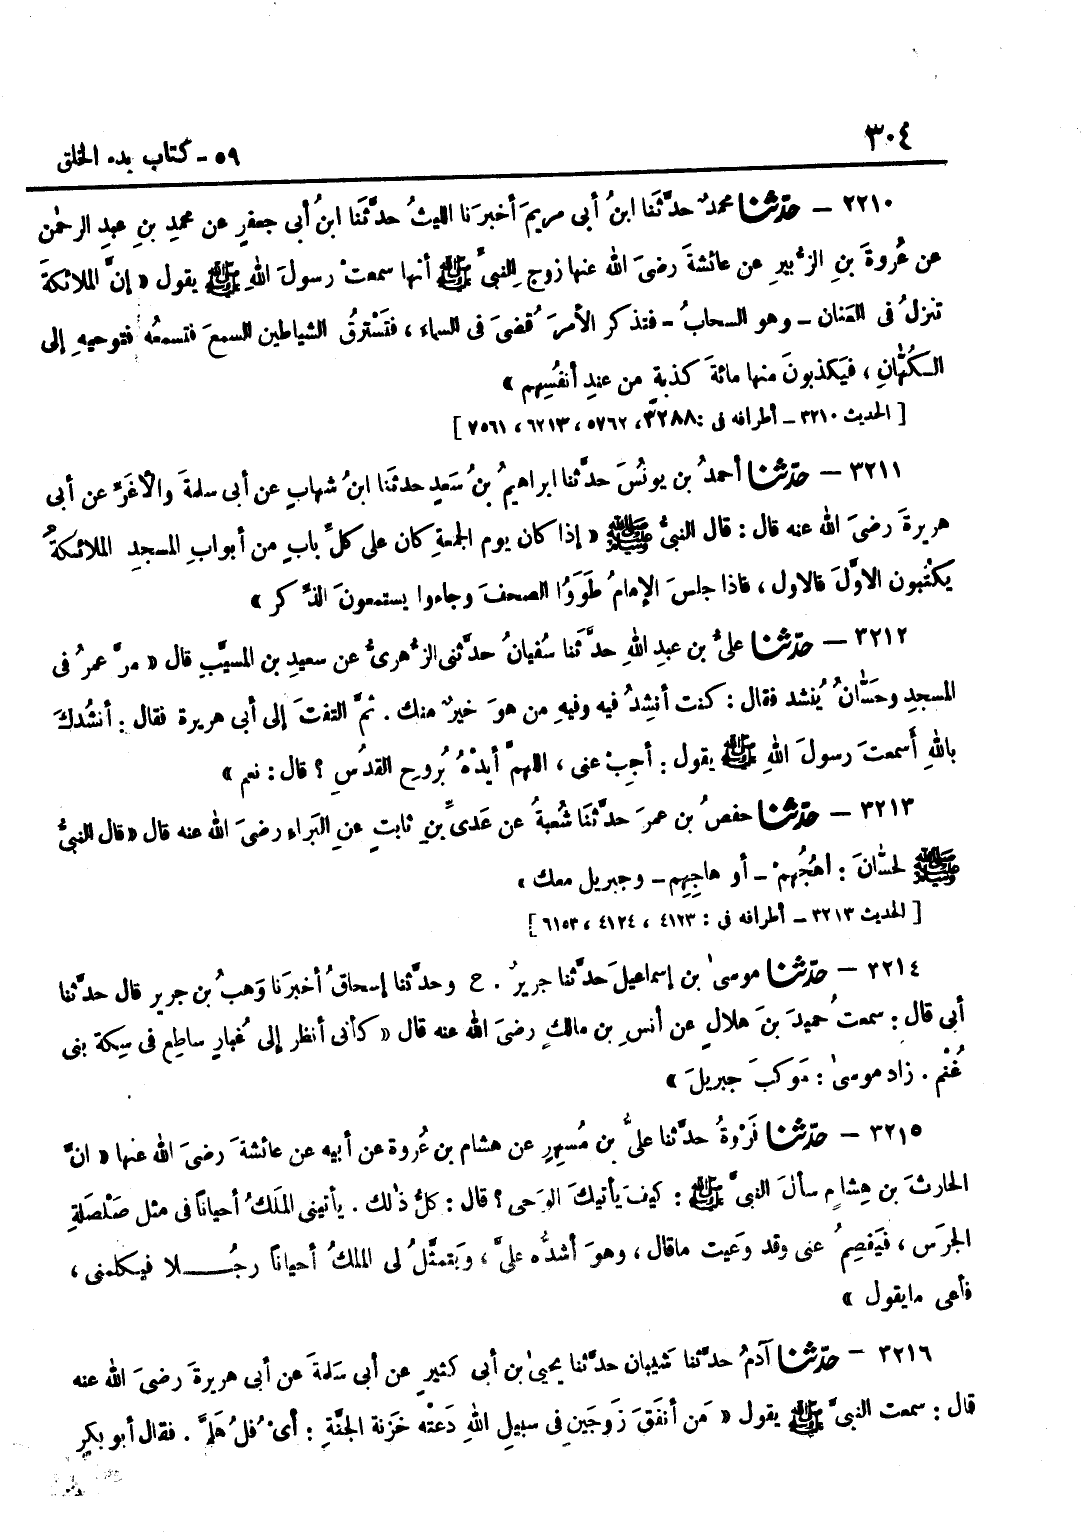 ٣٠٤
٥٩ - كتاب بدء الخلق
٣٢١٠ — حدّثنا محمدٌ حدَّثَنا ابنُ أبى مريمَ أخبرَنا الليثُ حدَّثَنا ابنُ أبى جعفرٍ عن محمدِ بنِ عبدِ الرحمٰن
عن عُروةَ بنِ الزُّبيرِ عن عائشةَ رضىَ اللهُ عنها زوجِ النبىِّ ﷺ أنها سمعتْ رسولَ اللهِ ﷺ يقول « إنَّ الملائكةَ
تنزلُ فى العنان - وهو السحابُ - فتذكر الأمرَ قُضىَ فى السماء ، فتَسْترقُ الشياطين السمعَ فتسمعُه فتوحيهِ إلى
الكُهّانِ ، فيَكذبونَ منها مائةَ كذبةٍ من عندِ أنفُسِهم »
[ الحديث ٣٢١٠ - أطرافه فى : ٣٢٨٨، ٥٧٦٢ ، ٦٢١٣ ، ٧٥٦١ ]
٣٢١١ — حدّثنا أحمدُ بن يونُسَ حدَّثنا ابراهيمُ بنُ سَعدٍ حدثنَا ابنُ شهابٍ عن أبى سلمةَ والأغرِّ عن أبى
هريرةَ رضىَ اللهُ عنه قال : قال النبىُّ ﷺ « إذا كان يوم الجمعةِ كان على كلِّ بابٍ من أبوابِ المسجدِ الملائكةُ
يَكتُبون الاوَّلَ فالاول ، فاذا جلسَ الإمامُ طَوَوُا الصحفَ وجاءوا يستمعونَ الذِّكر »
٣٢١٢ — حدّثنا علىُّ بن عبدِ اللهِ حدَّثَنا سُفيانُ حدَّثنى الزُّهرىُّ عن سعيدِ بن المسيَّبِ قال « مرَّ عمرُ فى
المسجدِ وحَسّانُ يُنشد فقال : كنت أنشِدُ فيه وفيهِ من هوَ خيرٌ منك . ثمَّ التفتَ إلى أبى هريرة فقال : أنشُدكَ
باللهِ أَسمعتَ رسولَ اللهِ ﷺ يقول : أجِبْ عنى ، اللهمَّ أيدْهُ بُروحِ القدُسِ ؟ قال : نعم »
٣٢١٣ — حدّثنا حفصُ بن عمرَ حدَّثنَا شُعبةُ عن عَدىِّ بنِ ثابتٍ عنِ البَراءِ رضىَ اللهُ عنه قال « قال النبىُّ
ﷺ لحسّانَ : اهْجُهمْ - أو هاجِهِم - وجبريل معك »
[ الحديث ٣٢١٣ - أطرافه فى : ٤١٢٣ ، ٤١٢٤ ، ٦١٥٣ ]
٣٢١٤ — حدّثنا موسىٰ بن إسماعيلَ حدَّثنا جريرٌ . ح وحدَّثنا إسحاقُ أخبرَنا وَهبُ بن جرير قال حدَّثنا
أبى قال : سمعتُ حُميدَ بنَ هلالٍ عن أنسِ بن مالكٍ رضىَ اللهُ عنه قال « كأنى أنظر إلى غُبارٍ ساطِعٍ فى سِكة بنى
غُنْم . زاد موسىٰ : مَوكبَ جبريلَ »
٣٢١٥ — حدّثنا فَرْوةُ حدَّثنا علىُّ بن مُسهِرٍ عن هشام بن عُروة عن أبيه عن عائشةَ رضىَ اللهُ عنها « انَّ
الحارثَ بن هِشامٍ سألَ النبىَّ ﷺ : كيفَ يأتيكَ الوَحى ؟ قال : كلُّ ذٰلك . يأتينى الملَكُ أحياناً فى مثل صَلْصَلةِ
الجرَس ، فيَفصِمُ عنى وقد وعَيت ماقال ، وهوَ أشدُّه علىَّ ، ويَتمثَّلُ لى الملكُ أحياناً رجُـــلا فيكلمنى ،
فأعى مايقول »
٣٢١٦ — حدّثنا آدمُ حدَّثنا شيبان حدَّثنا يحيىٰ بن أبى كثيرٍ عن أبى سَلمةَ عن أبى هريرةَ رضىَ اللهُ عنه
قال : سمعت النبىَّ ﷺ يقول « مَن أنفَقَ زَوجَينِ فى سبيلِ اللهِ دَعتْه خَزنة الجنَّةِ : أىْ فُلُ هَلمَّ . فقال أبو بكرٍ